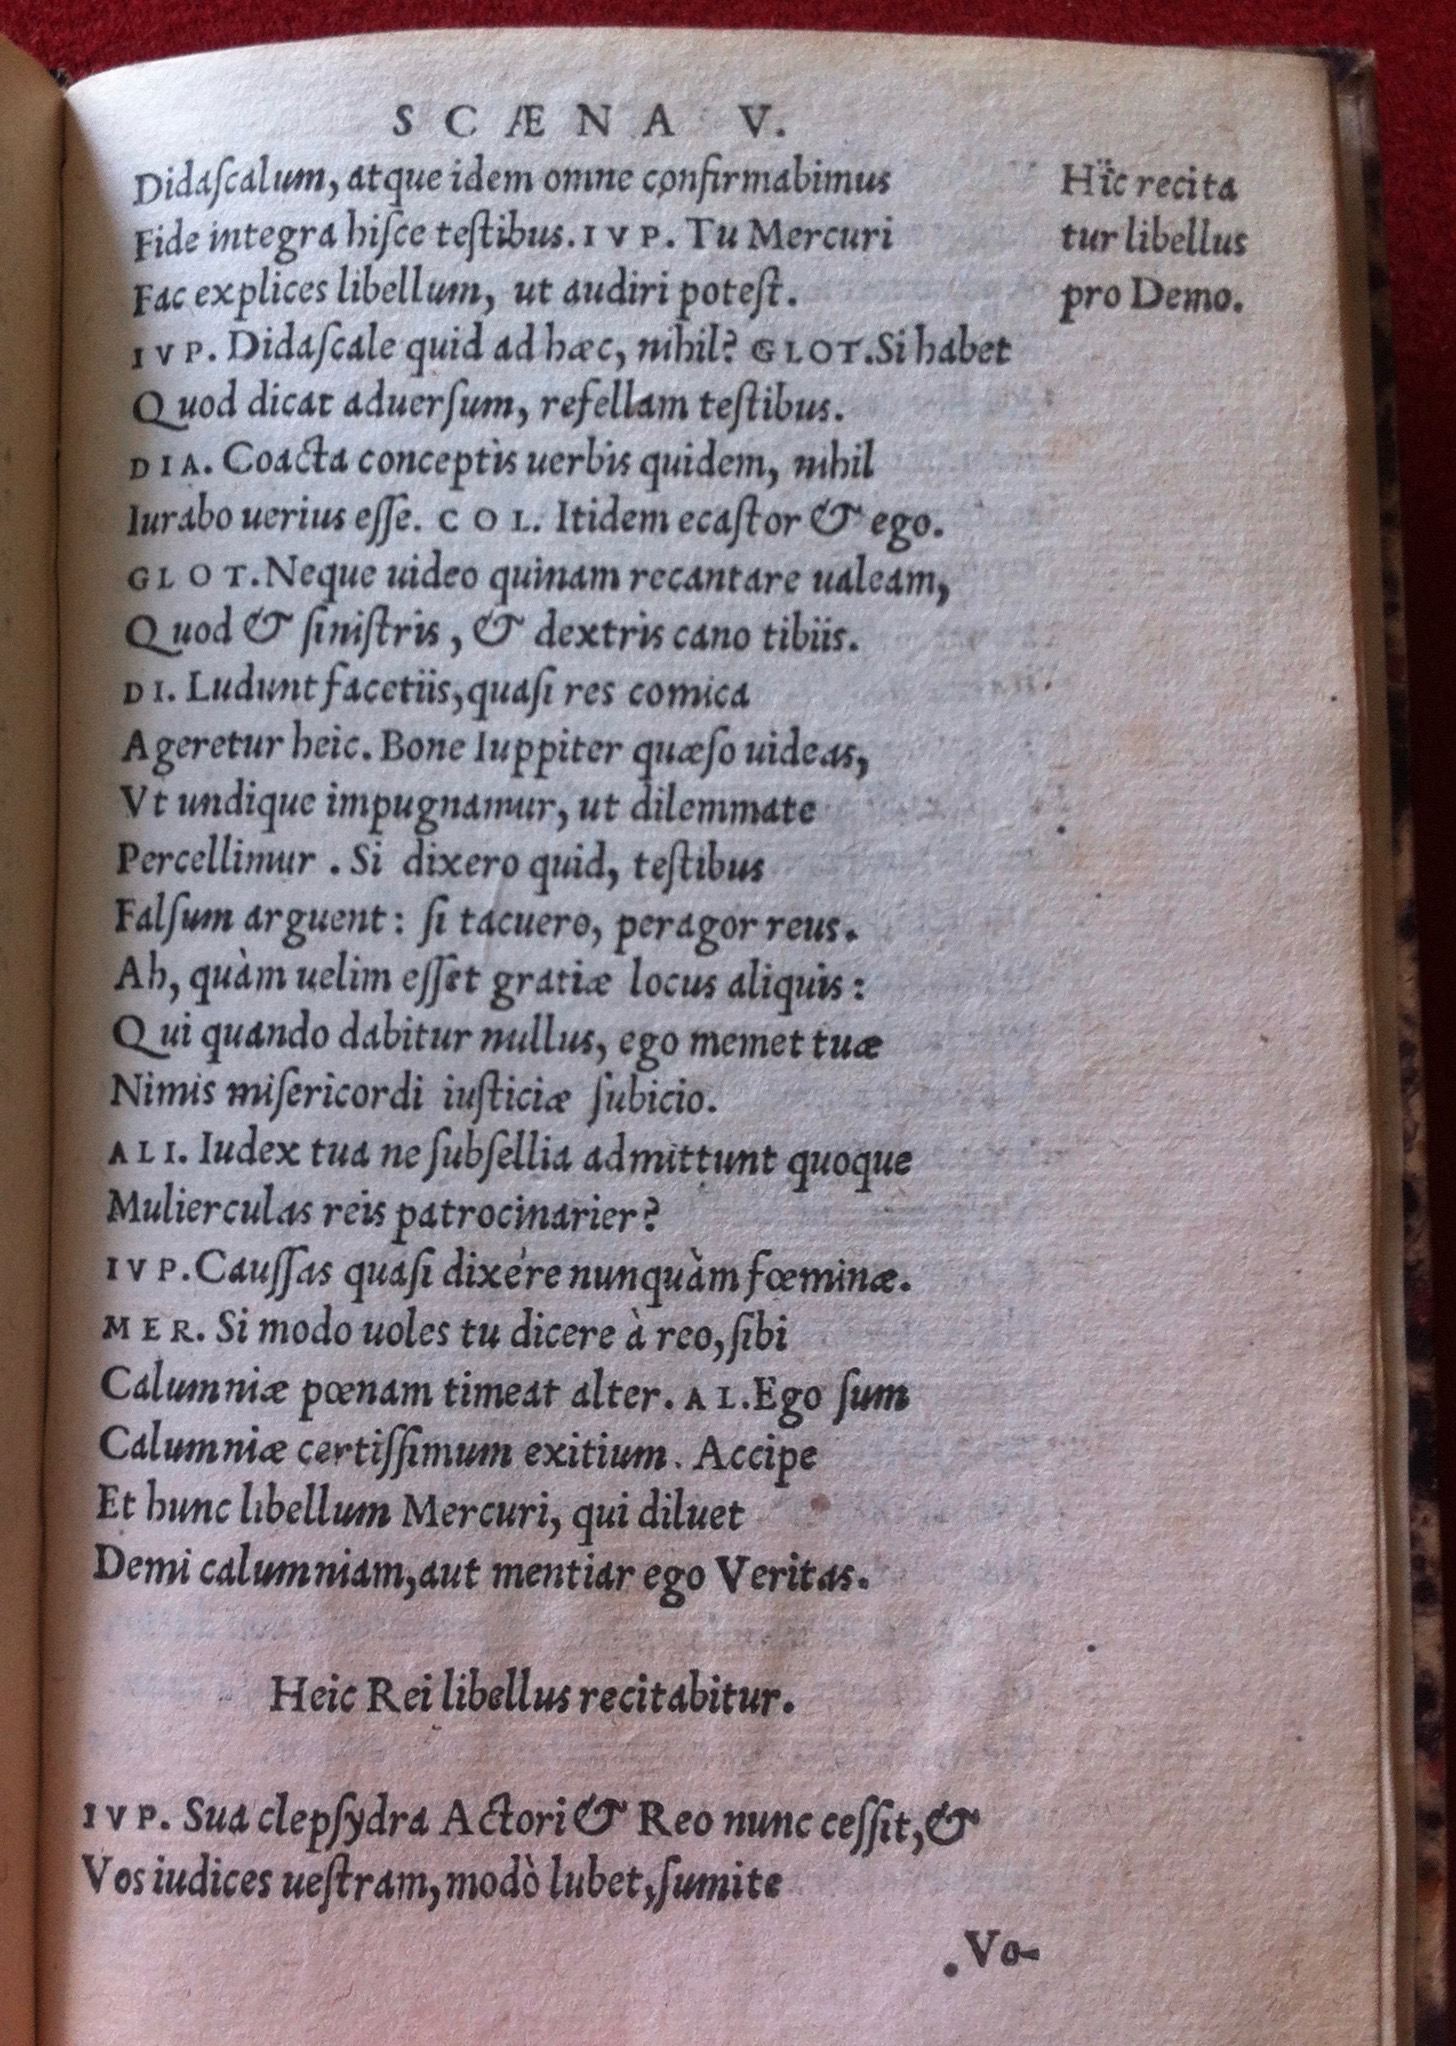 SCÆNA V.
Didaſcalum, atque idem omne confirmabimus
Fide integra hiſce teſtibus. IVP. Tu Mercuri
Fac explices libellum, ut audiri poteſt.
Hîc recita
tur libellus
pro Demo.
IVP. Didaſcale quid ad hæc, nihil? GLOT. Si habet
Quod dicat aduerſum, refellam teſtibus.
DIA. Coacta conceptis uerbis quidem, nihil
Iurabo uerius eſſe. COL. Itidem ecaſtor & ego.
GLOT. Neque uideo quinam recantare ualeam,
Quod & ſiniſtris, & dextris cano tibiis.
DI. Ludunt facetiis, quaſi res comica
Ageretur heic. Bone Iuppiter quæſo uideas,
Vt undique impugnamur, ut dilemmate
Percellimur. Si dixero quid, teſtibus
Falſum arguent: ſi tacuero, peragor reus.
Ah, quàm uelim eſſet gratiæ locus aliquis:
Qui quando dabitur nullus, ego memet tuæ
Nimis miſericordi iuſticiæ ſubicio.
ALI. Iudex tua ne ſubſellia admittunt quoque
Mulierculas reis patrocinarier?
IVP. Cauſſas quaſi dixére nunquàm fœminæ.
MER. Si modo uoles tu dicere à reo, ſibi
Calumniæ pœnam timeat alter. AL. Ego ſum
Calumniæ certiſſimum exitium. Accipe
Et hunc libellum Mercuri, qui diluet
Demi calumniam, aut mentiar ego Veritas.
Heic Rei libellus recitabitur.
IVP. Sua clepſydra Actori & Reo nunc ceſſit, &
Vos iudices ueſtram, modò lubet, ſumite
Vo-